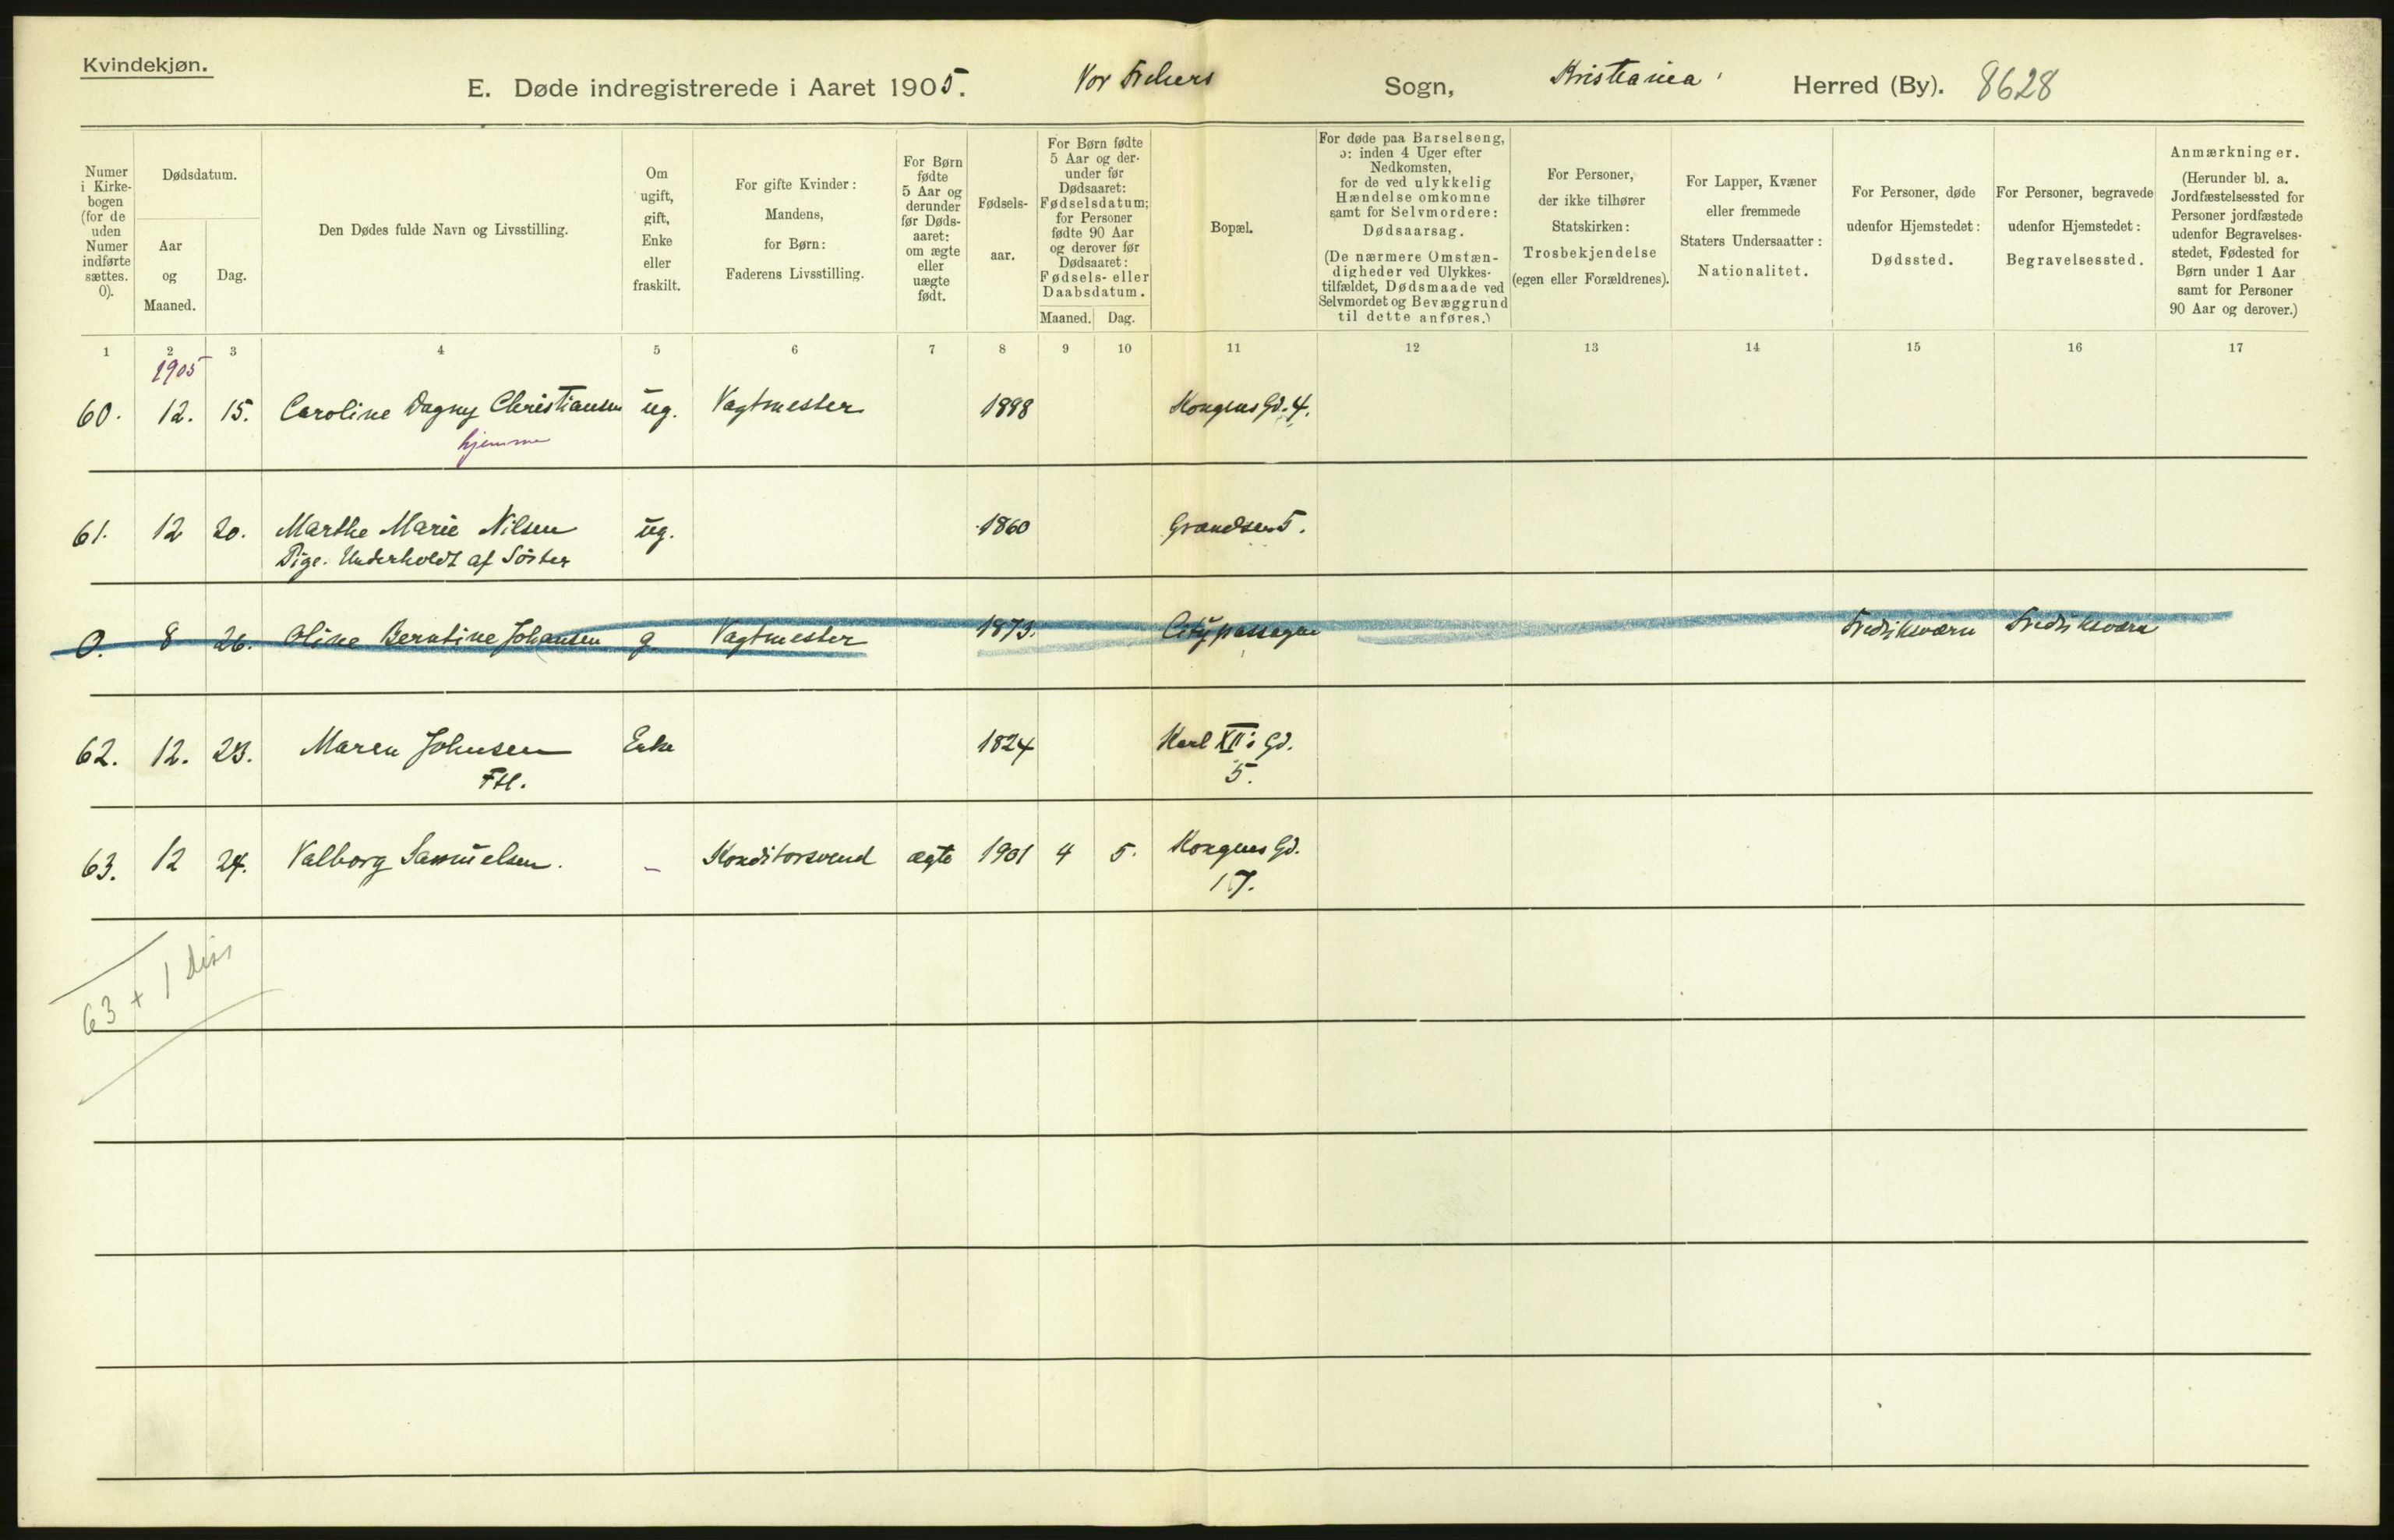 Kvindekjøn.
E. Døde indregistrerede i Aaret 1905. Vor Frelsers Sogn, Kristiania Herred (By). 8628
Numer i Kirke-bogen (for de uden Numer indførte sættes. 0).
Dødsdatum.
Aar og Maaned.
Dag.
Den Dødes fulde Navn og Livsstilling.
Om ugift, gift, Enke eller fraskilt.
For gifte Kvinder: Mandens, for Børn: Faderens Livsstilling.
For Børn fødte 5 Aar og derunder før Døds-aaret: om ægte eller uægte født.
Fødsels-aar.
For Børn fødte 5 Aar og der-under før Dødsaaret: Fødselsdatum; for Personer fødte 90 Aar og derover før Dødsaaret: Fødsels- eller Daabsdatum.
Maaned. Dag.
Bopæl.
For døde paa Barselseng, ɔ: inden 4 Uger efter Nedkomsten, for de ved ulykkelig Hændelse omkomne samt for Selvmordere: Dødsaarsag.
(De nærmere Omstæn-digheder ved Ulykkes-tilfældet, Dødsmaade ved Selvmordet og Bevæggrund til dette anføres.)
For Personer, der ikke tilhører Statskirken: Trosbekjendelse (egen eller Forældrenes).
For Lapper, Kvæner eller fremmede Staters Undersaatter: Nationalitet.
For Personer, døde udenfor Hjemstedet: Dødssted.
For Personer, begravede udenfor Hjemstedet: Begravelsessted.
Anmærkninger.
(Herunder bl. a. Jordfæstelsessted for Personer jordfæstede udenfor Begravelses-stedet, Fødested for Børn under 1 Aar samt for Personer 90 Aar og derover.)
1 2 3 4 5 6 7 8 9 10 11 12 13 14 15 16 17
1905
60. 12. 15. Caroline Dagny Christiansen ug. Vagtmester 1898 Kongens Gd. 4.
hjemme
61. 12 20. Marthe Marie Nilsen ug. 1860 Grændsen 5.
Pige. Underholdt af Söster
0. 8 26. Oline Berntine Johansen g. Vagtmester 1873. Citypassagen Fredriksværn Fredriksværn
62. 12. 23. Maren Johnsen Enke 1824 Karl XII's Gd.
Ftl. 5.
63. 12 24. Valborg Samuelsen. - Konditorsvend ægte 1901 4 5. Kongens Gd.
17.
63 + 1 diss